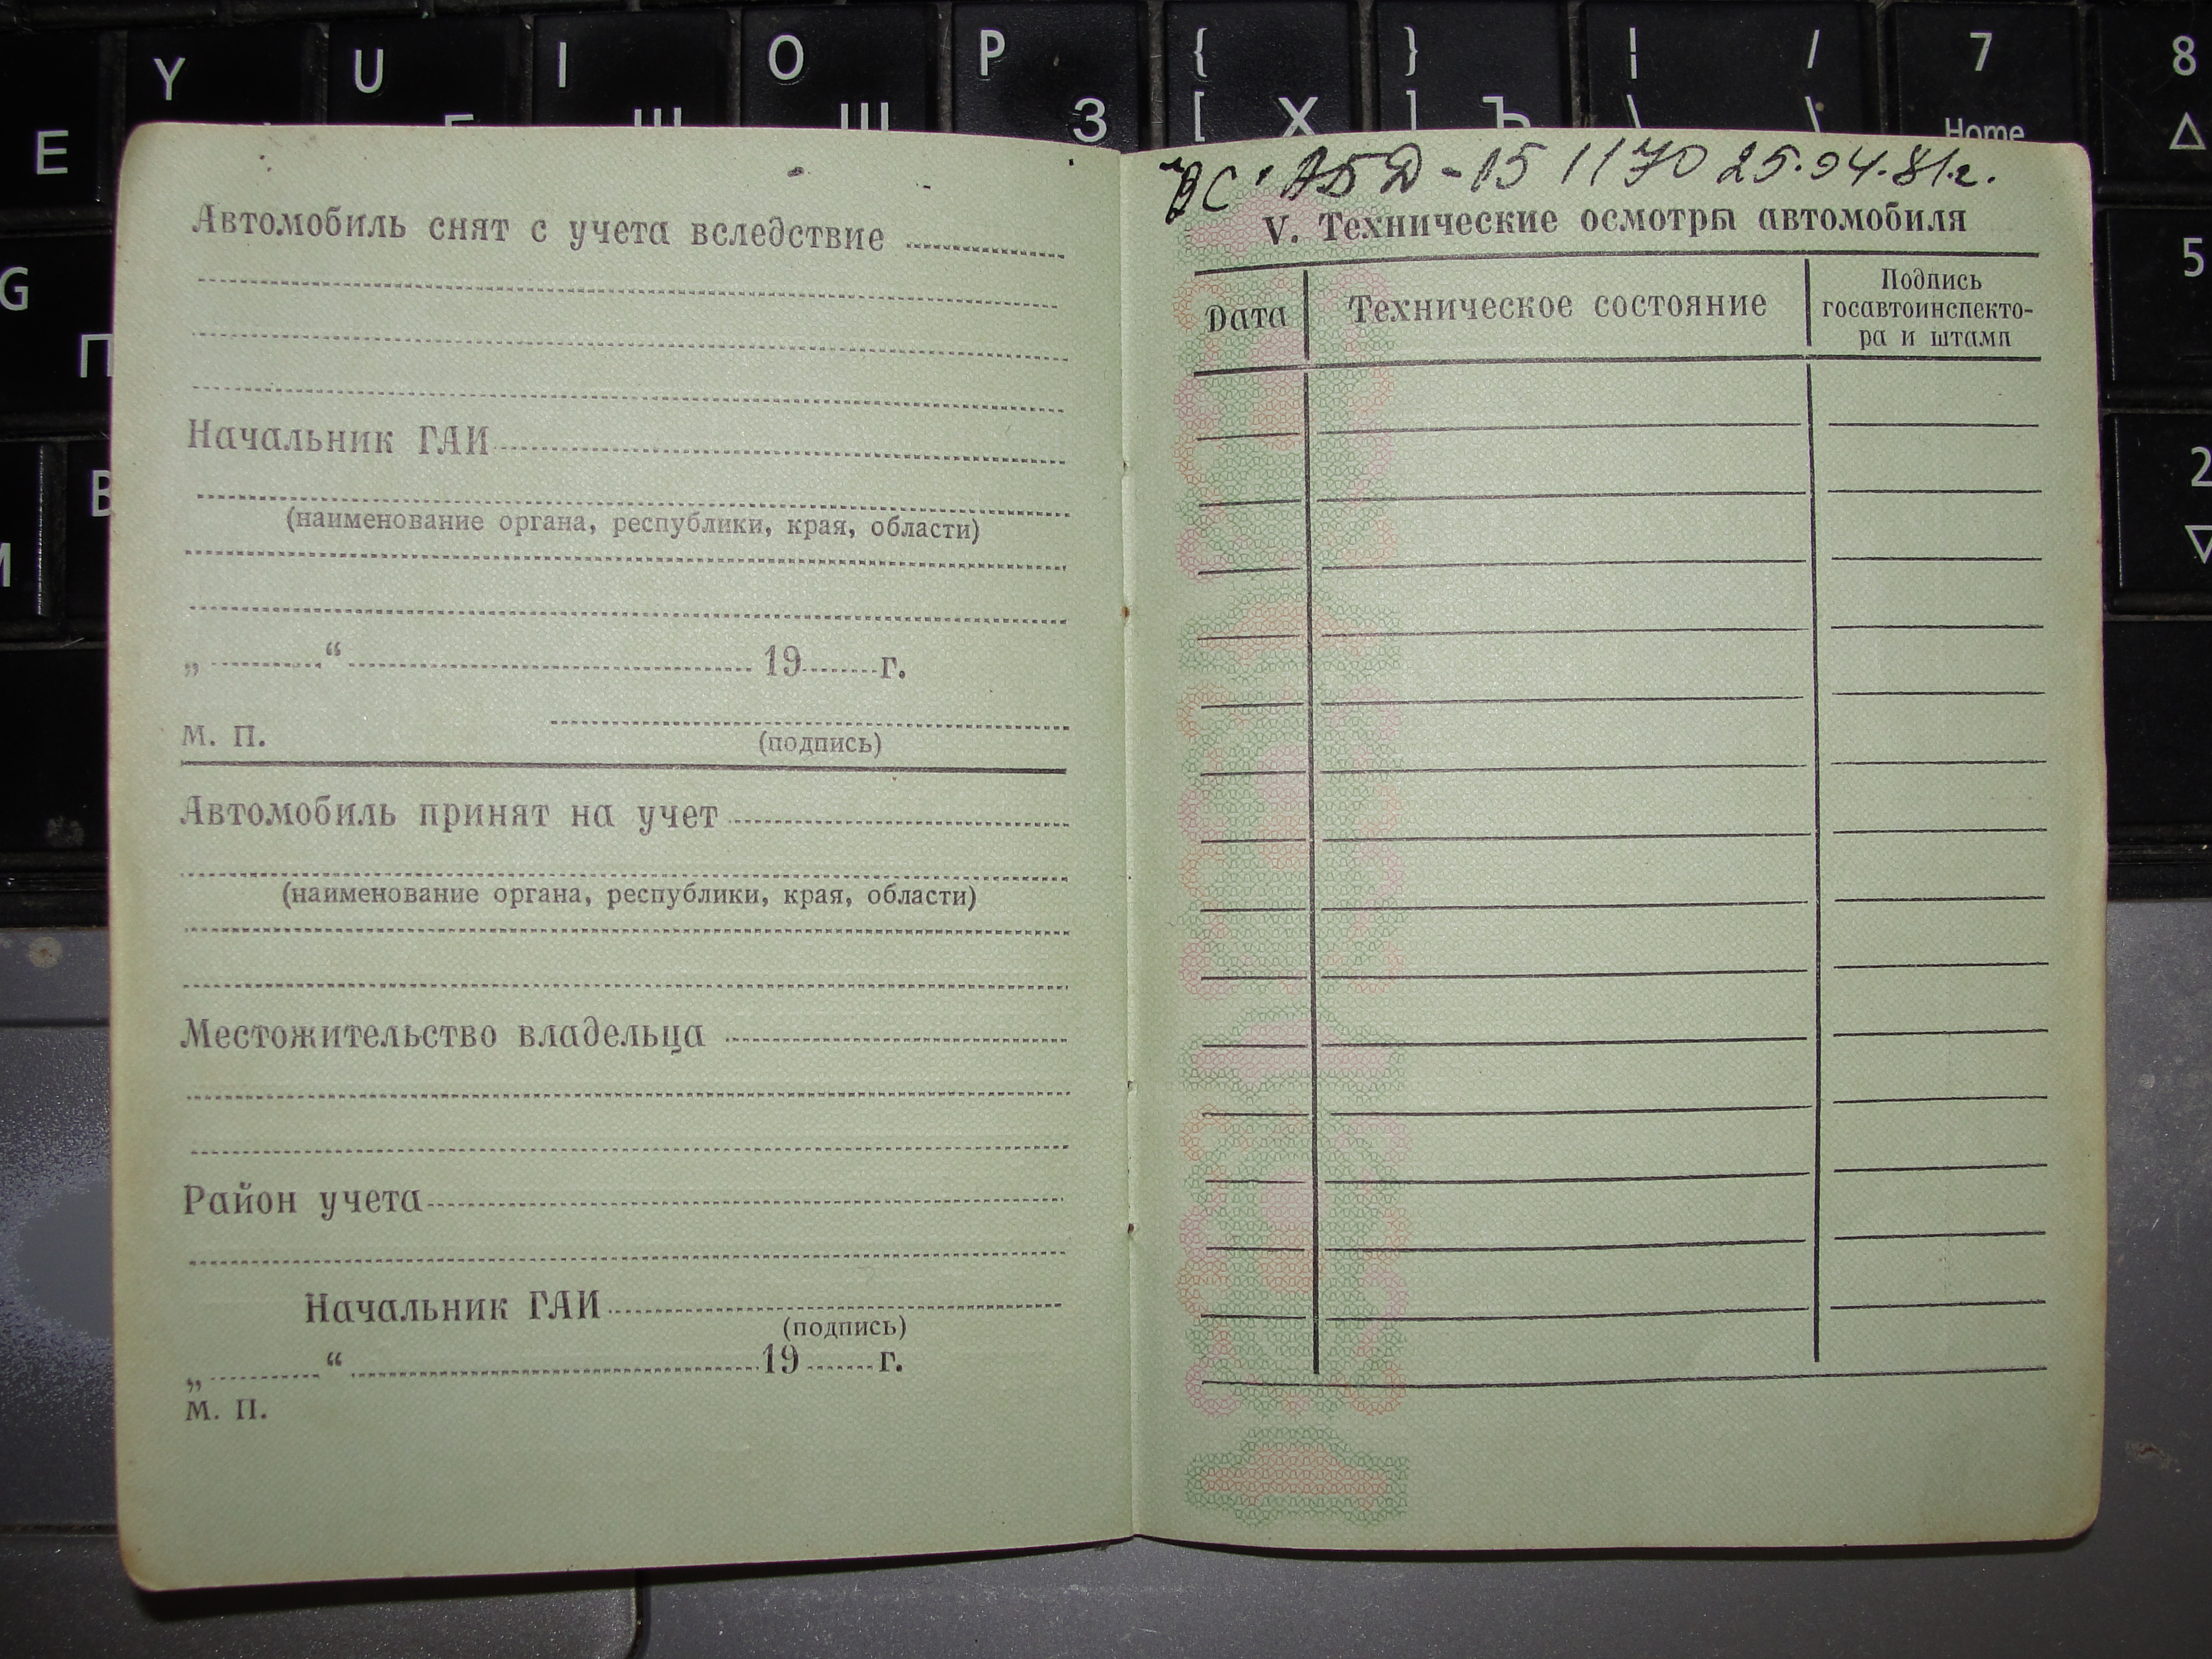 Y U I O P { } ¦ / 7 8
E З [ Х ] Ъ \ \ Home
G 5
П
В 2
Автомобиль снят с учета вследствие
Начальник ГАИ
(наименование органа, республики, края, области)
„ “ 19 г.
М. П.
(подпись)
Автомобиль принят на учет
(наименование органа, республики, края, области)
Местожительство владельца
Район учета
Начальник ГАИ
(подпись)
„ “ 19 г.
М. П.
АБД-15 1170 25.04.81г.
V. Технические осмотры автомобиля
Дата
Техническое состояние
Подпись
госавтоинспекто-
ра и штамп